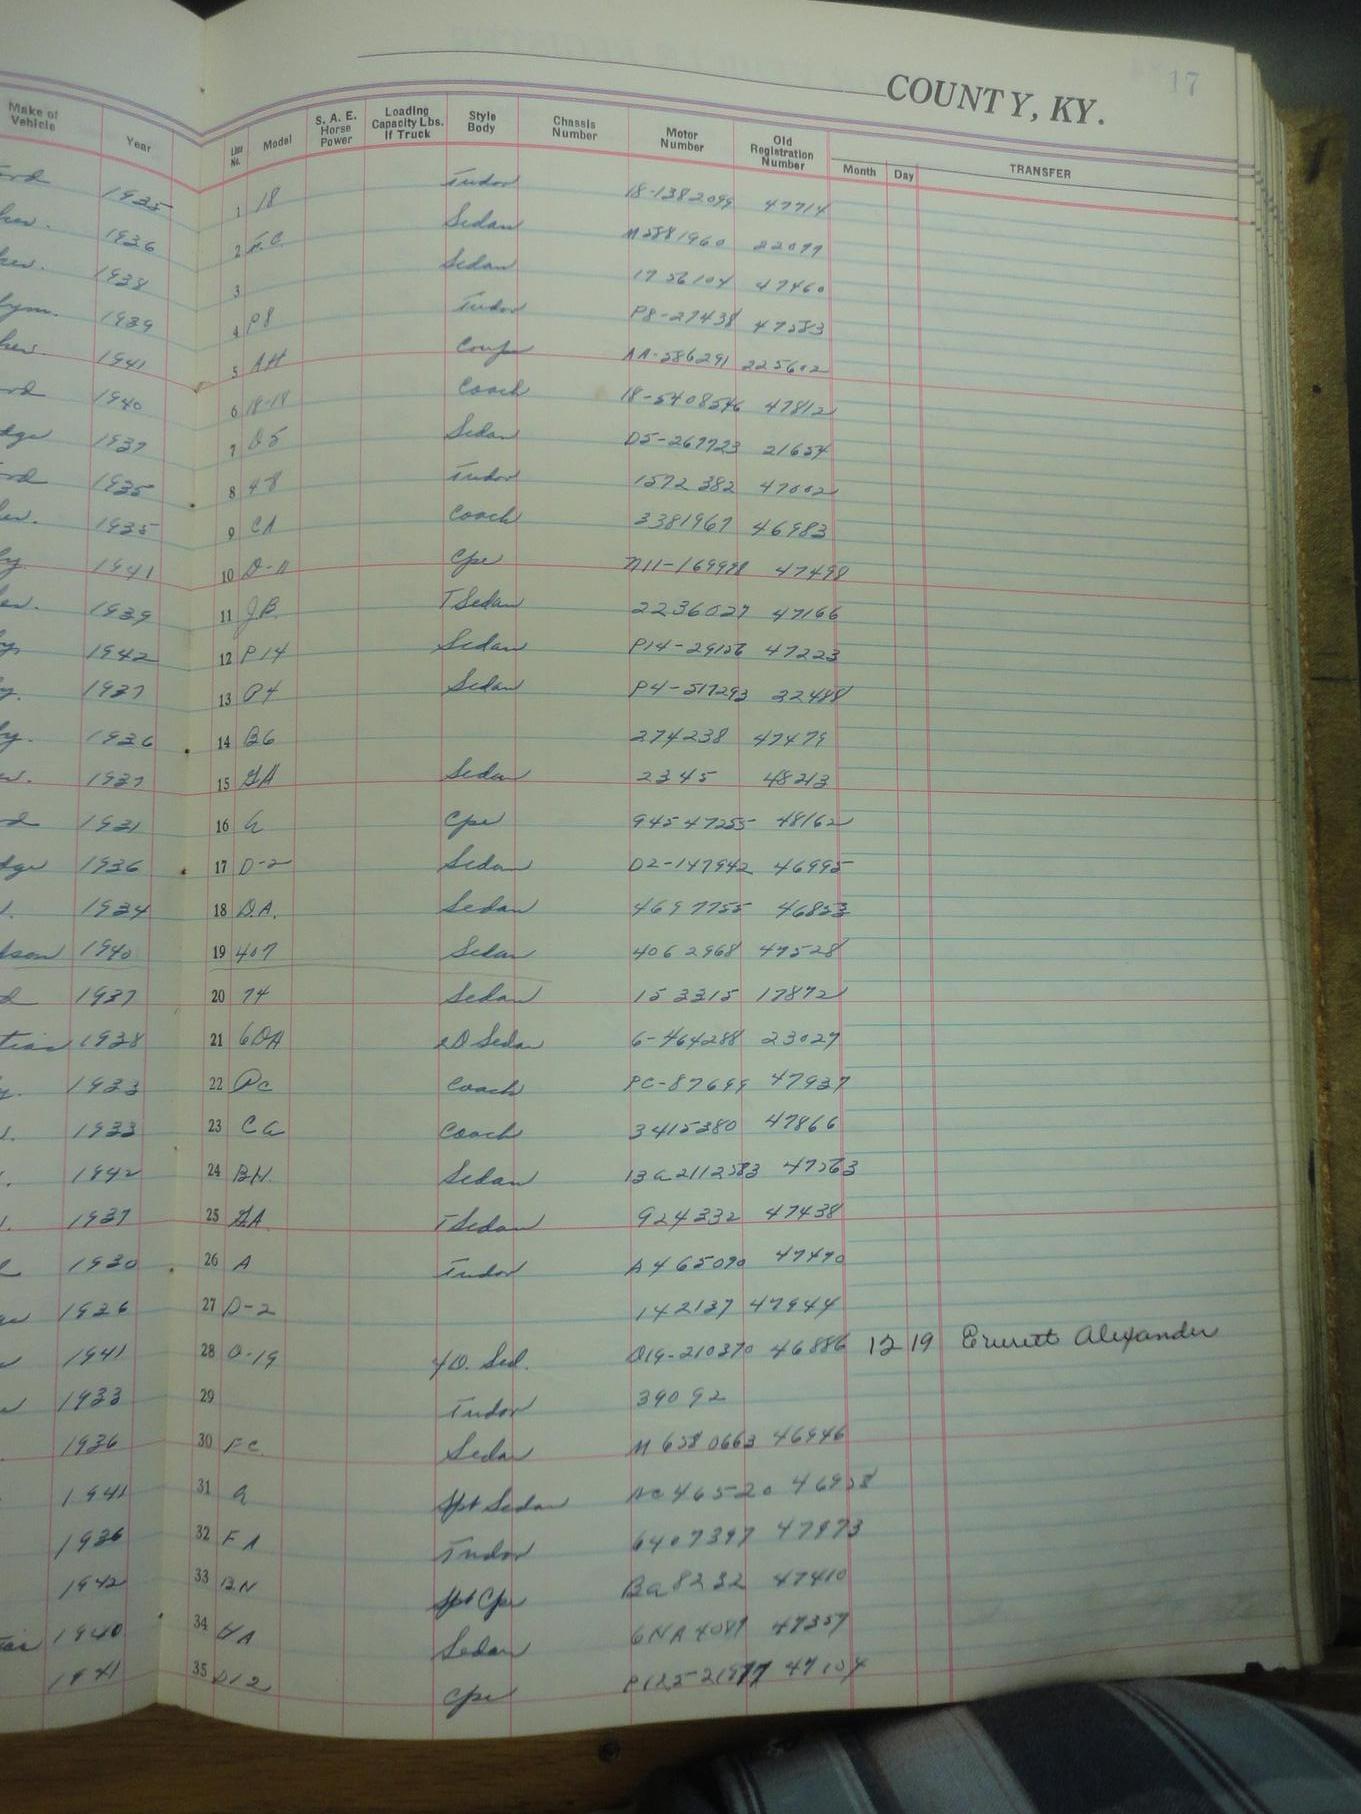 COUNTY, KY. 17
Make of Vehicle Year Line No. Model S. A. E. Horse Power Loading Capacity Lbs. If Truck Style Body Chassis Number Motor Number Old Registration Number Month Day TRANSFER
1935 1 18 Tudor 18-1382099 47714
1936 2 F.C. Sedan 22099
1938 3 Sedan 1756104 47460
1939 4 P8 Tudor P8-27438 47583
1941 5 AH Coupe AA-586291 225602
1940 6 18-18 Coach 18-5408546 47812
1937 7 D5 Sedan D5-267723 21654
1935 8 48 Tudor 1572382 47002
1935 9 CA Coach 3381967 46983
1941 10 D-11 Cpe 47498
1939 11 JB TSedan 2236027 47166
1942 12 P14 Sedan 47223
1937 13 P4 Sedan P4-517293 22488
1936 14 B6 274238 47479
1937 15 GA Sedan 2345 48213
1931 16 A Cpe 94547255 48162
1936 17 D-2 Sedan D2-147942 46995
1934 18 D.A. Sedan 4697755 46853
1940 19 407 Sedan 4062968 47528
1937 20 74 Sedan 153315 17872
1938 21 6DA 2D Sedan 6-464288 23027
1933 22 Pc Coach PC-87699 47937
1933 23 Ca Coach 3415380 47866
1942 24 BH. Sedan 47563
1937 25 GA TSedan 924332 47438
1930 26 A Tudor A465090 47470
1936 27 D-2 142137 47944
1941 28 D-19 4D. Sed. D19-210370 46886 12 19 Everett Alexander
1933 29 Tudor 39092
1936 30 FC. Sedan M 6580663 46946
1941 31 a Spt Sedan 46958
1936 32 FA Tudor 6407397 47973
1942 33 BN Spt Cpe Ba8232 47410
1940 34 HA Sedan 6NA4089 47357
1941 35 Cpe 47104